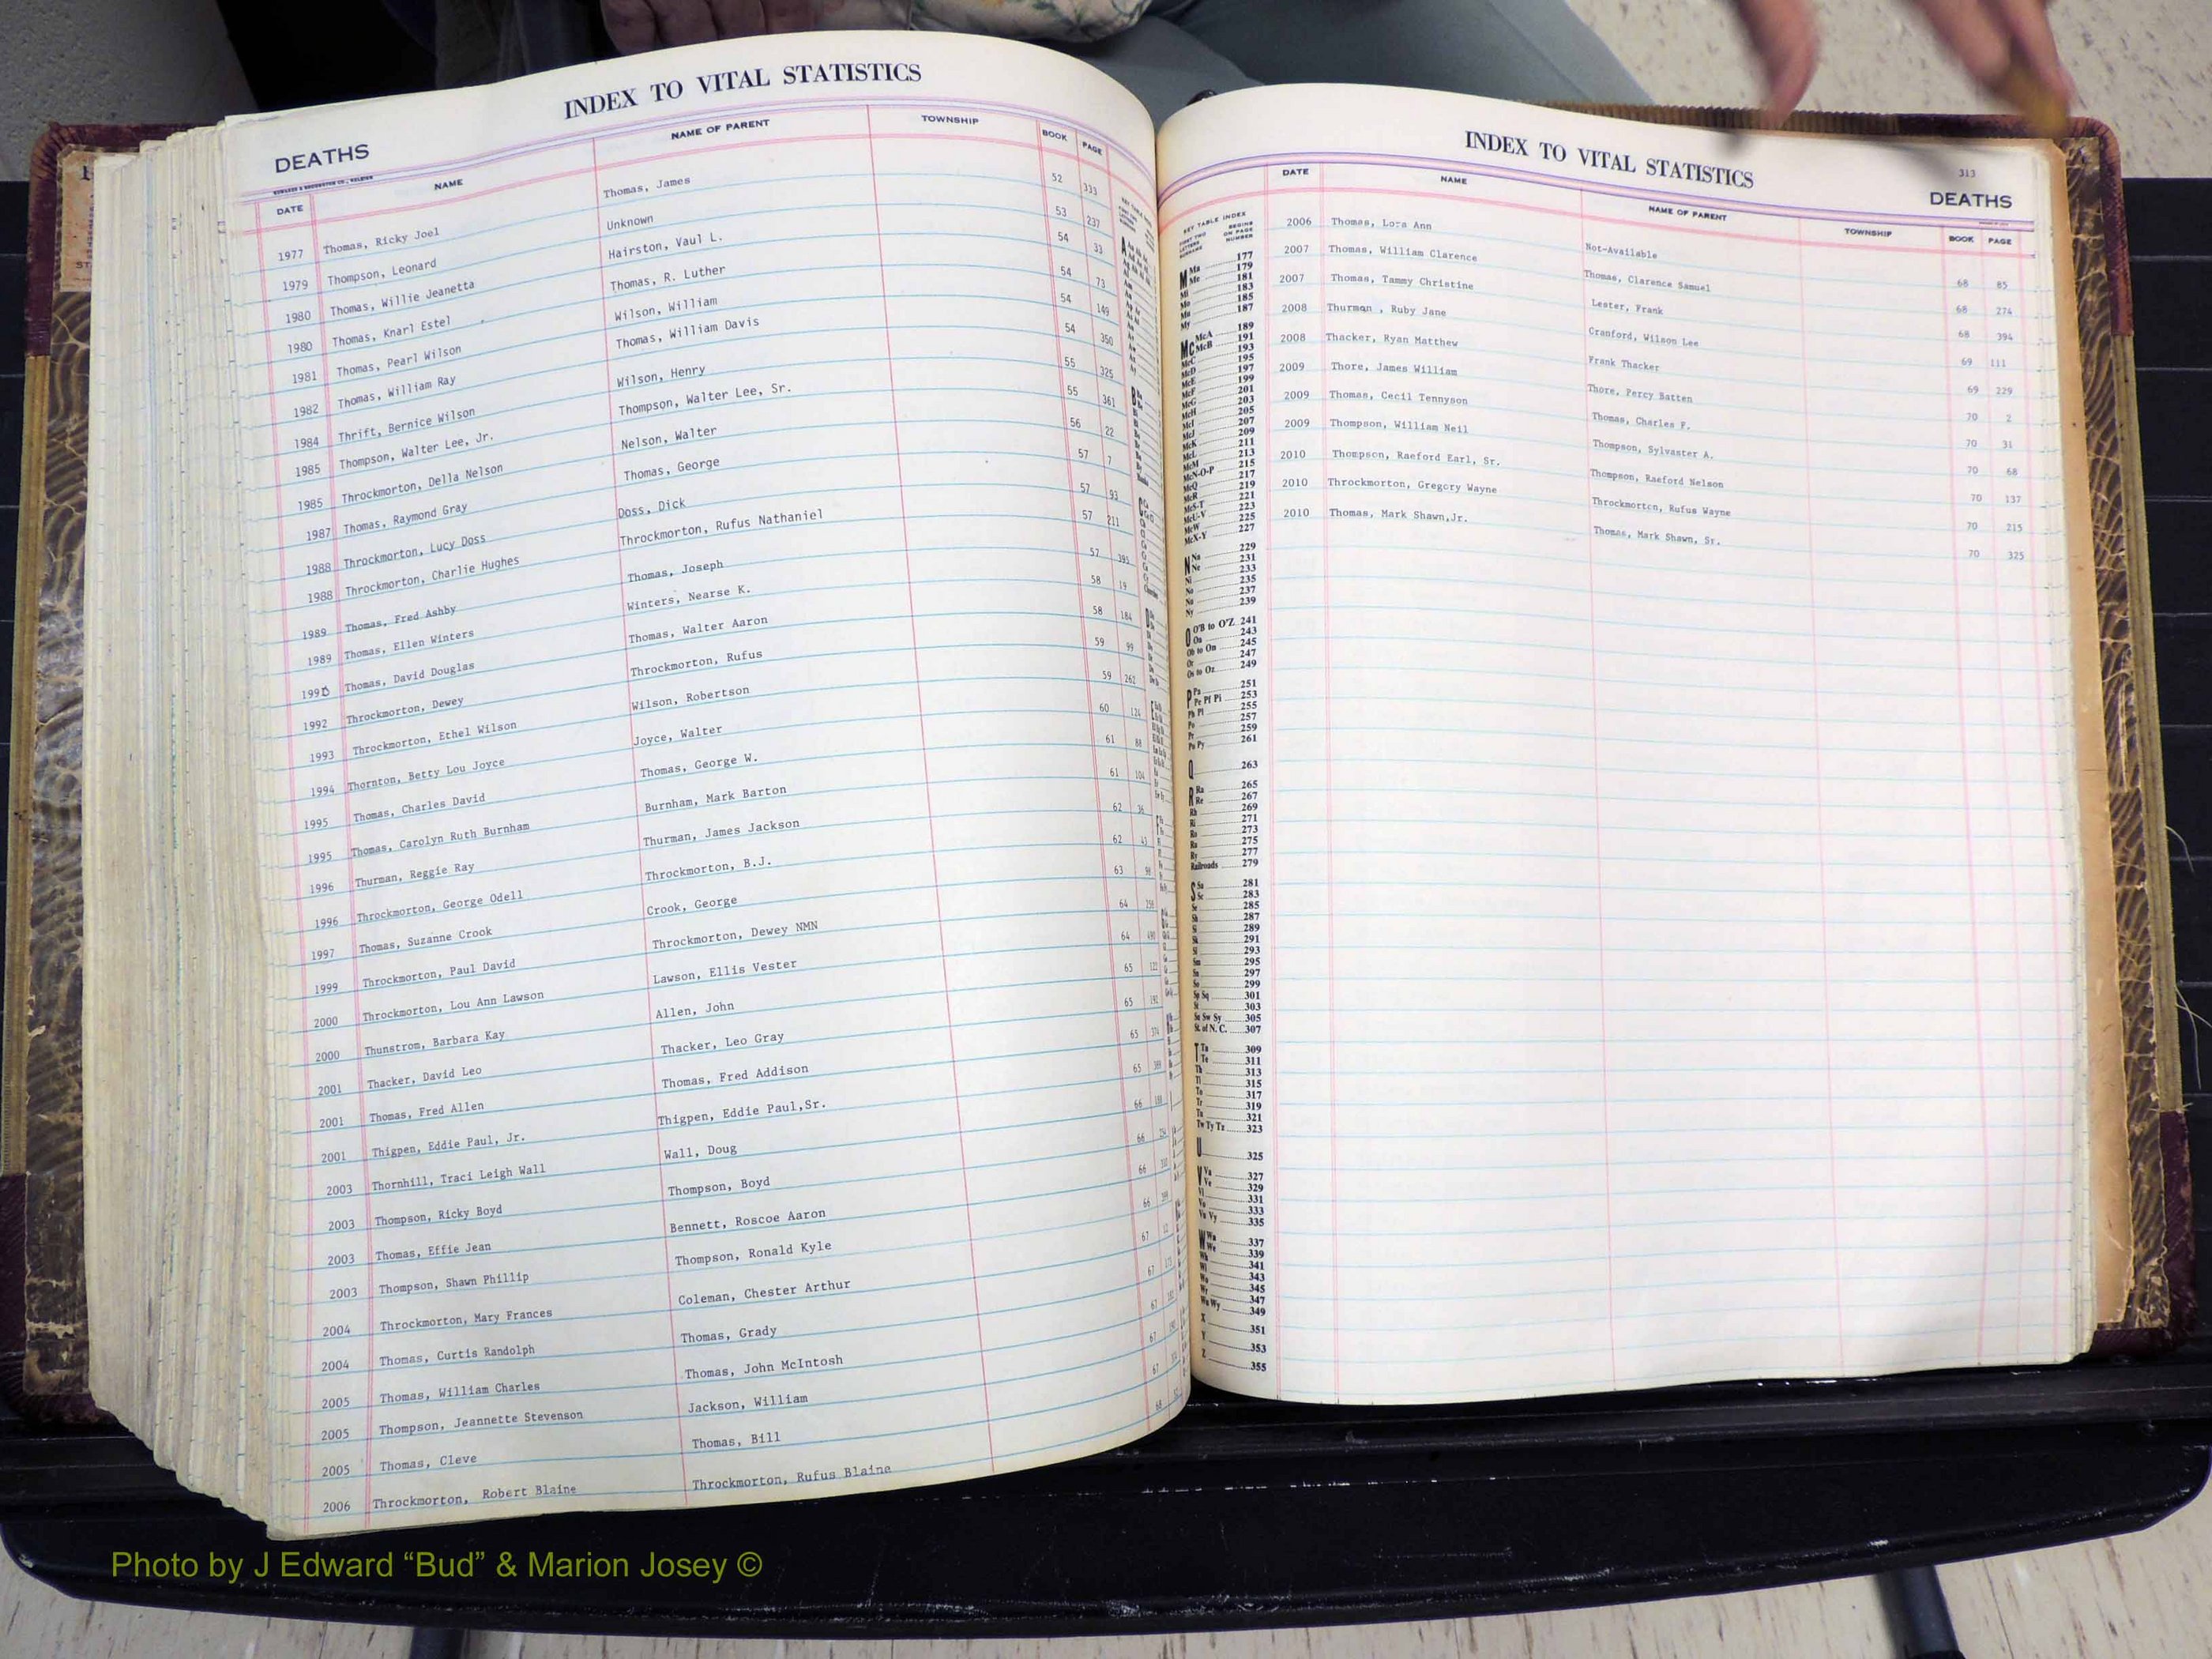 INDEX TO VITAL STATISTICS
DEATHS
DATE NAME NAME OF PARENT TOWNSHIP BOOK PAGE
1977 Thomas, Ricky Joel Thomas, James 52 333
1979 Thompson, Leonard Unknown 53 237
1980 Thomas, Willie Jeanetta Hairston, Vaul L. 54 33
1980 Thomas, Knarl Estel Thomas, R. Luther 54 73
1981 Thomas, Pearl Wilson Wilson, William 54 149
1982 Thomas, William Ray Thomas, William Davis 54 350
1984 Thrift, Bernice Wilson Wilson, Henry 55 325
1985 Thompson, Walter Lee, Jr. Thompson, Walter Lee, Sr. 55 361
1985 Throckmorton, Della Nelson Nelson, Walter 56 22
1987 Thomas, Raymond Gray Thomas, George 57 7
1988 Throckmorton, Lucy Doss Doss, Dick 57 93
1988 Throckmorton, Charlie Hughes Throckmorton, Rufus Nathaniel 57 211
1989 Thomas, Fred Ashby Thomas, Joseph 57 395
1989 Thomas, Ellen Winters Winters, Nearse K. 58 19
1990 Thomas, David Douglas Thomas, Walter Aaron 58 184
1992 Throckmorton, Dewey Throckmorton, Rufus 59 99
1993 Throckmorton, Ethel Wilson Wilson, Robertson 59 262
1994 Thornton, Betty Lou Joyce Joyce, Walter 60 124
1995 Thomas, Charles David Thomas, George W. 61 88
1995 Thomas, Carolyn Ruth Burnham Burnham, Mark Barton 61 104
1996 Thurman, Reggie Ray Thurman, James Jackson 62 36
1996 Throckmorton, George Odell Throckmorton, B.J. 62 43
1997 Thomas, Suzanne Crook Crook, George 63
1999 Throckmorton, Paul David Throckmorton, Dewey NMN 64
2000 Throckmorton, Lou Ann Lawson Lawson, Ellis Vester 64 490
2000 Thunstrom, Barbara Kay Allen, John 65 122
2001 Thacker, David Leo Thacker, Leo Gray 65 192
2001 Thomas, Fred Allen Thomas, Fred Addison 65 374
2001 Thigpen, Eddie Paul, Jr. Thigpen, Eddie Paul,Sr. 65
2003 Thornhill, Traci Leigh Wall Wall, Doug 66
2003 Thompson, Ricky Boyd Thompson, Boyd 66
2003 Thomas, Effie Jean Bennett, Roscoe Aaron 66
2003 Thompson, Shawn Phillip Thompson, Ronald Kyle 66
2004 Throckmorton, Mary Frances Coleman, Chester Arthur 67
2004 Thomas, Curtis Randolph Thomas, Grady 67
2005 Thomas, William Charles Thomas, John McIntosh 67
2005 Thompson, Jeannette Stevenson Jackson, William 67
2005 Thomas, Cleve Thomas, Bill 67
2006 Throckmorton, Robert Blaine Throckmorton, Rufus Blaine 68
INDEX TO VITAL STATISTICS
313
DEATHS
DATE NAME NAME OF PARENT TOWNSHIP BOOK PAGE
2006 Thomas, Lora Ann Not-Available 68 85
2007 Thomas, William Clarence Thomas, Clarence Samuel 68 274
2007 Thomas, Tammy Christine Lester, Frank 68 394
2008 Thurman , Ruby Jane Cranford, Wilson Lee 69 111
2008 Thacker, Ryan Matthew Frank Thacker 69 229
2009 Thore, James William Thore, Percy Batten 70 2
2009 Thomas, Cecil Tennyson Thomas, Charles F. 70 31
2009 Thompson, William Neil Thompson, Sylvaster A. 70 68
2010 Thompson, Raeford Earl, Sr. Thompson, Raeford Nelson 70 137
2010 Throckmorton, Gregory Wayne Throckmorton, Rufus Wayne 70 215
2010 Thomas, Mark Shawn,Jr. Thomas, Mark Shawn, Sr. 70 325
KEY TABLE INDEX
FIRST TWO LETTERS SURNAME
BEGINS ON PAGE NUMBER
M Ma 177
Me 179
181
Mi 183
Mo 185
Mu 187
My
Mc McA 189
McB 191
193
McC 195
McD 197
McE 199
McF 201
McG 203
McH 205
McI 207
McJ 209
McK 211
McL 213
McM 215
McN-O-P 217
McQ 219
McR 221
McS-T 223
McU-V 225
McW 227
McX-Y
N Na 229
Ne 231
233
Ni 235
No 237
Nu 239
Ny
O O'B to O'Z 241
Oa 243
Ob to On 245
Or 247
Os to Oz 249
P Pa 251
Pe Pf Pi 253
Ph Pl 255
Po 257
Pr 259
Pu Py 261
Q 263
R Ra 265
Re 267
Rh 269
Ri 271
Ro 273
Ru 275
Ry 277
Railroads 279
S Sa 281
Sc 283
Se 285
Sh 287
Si 289
Sk 291
Sl 293
Sm 295
Sn 297
So 299
Sp Sq 301
St 303
Su Sw Sy 305
St. of N. C. 307
T Ta 309
Te 311
Th 313
Ti 315
To 317
Tr 319
Tu 321
Tw Ty Tz 323
U 325
V Va 327
Ve 329
Vi 331
Vo 333
Vu Vy 335
W Wa 337
We 339
Wh 341
Wi 343
Wo 345
Wr 347
Wu Wy 349
X 351
Y 353
Z 355
Photo by J Edward “Bud” & Marion Josey ©